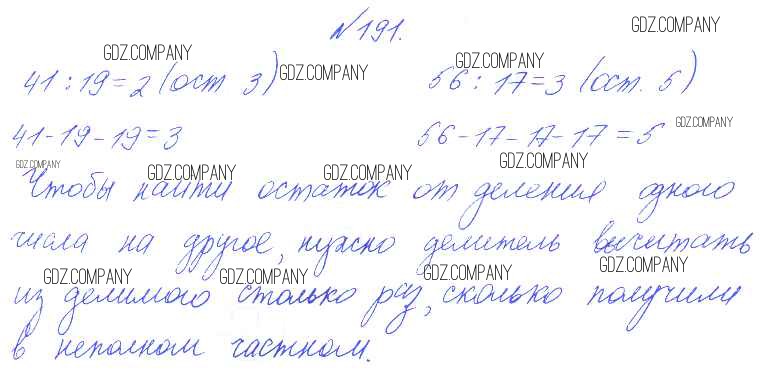 №191.
GDZ.COMPANY
GDZ.COMPANY GDZ.COMPANY GDZ.COMPANY
41:19=2 (ост 3) 56:17=3 (ост. 5)
41-19-19=3 56-17-17-17=5
GDZ.COMPANY GDZ.COMPANY
GDZ.COMPANY GDZ.COMPANY GDZ.COMPANY
Чтобы найти остаток от деления одного
числа на другое, нужно делитель вычитать
GDZ.COMPANY GDZ.COMPANY GDZ.COMPANY GDZ.COMPANY
из делимого столько раз, сколько получили
в неполном частном.